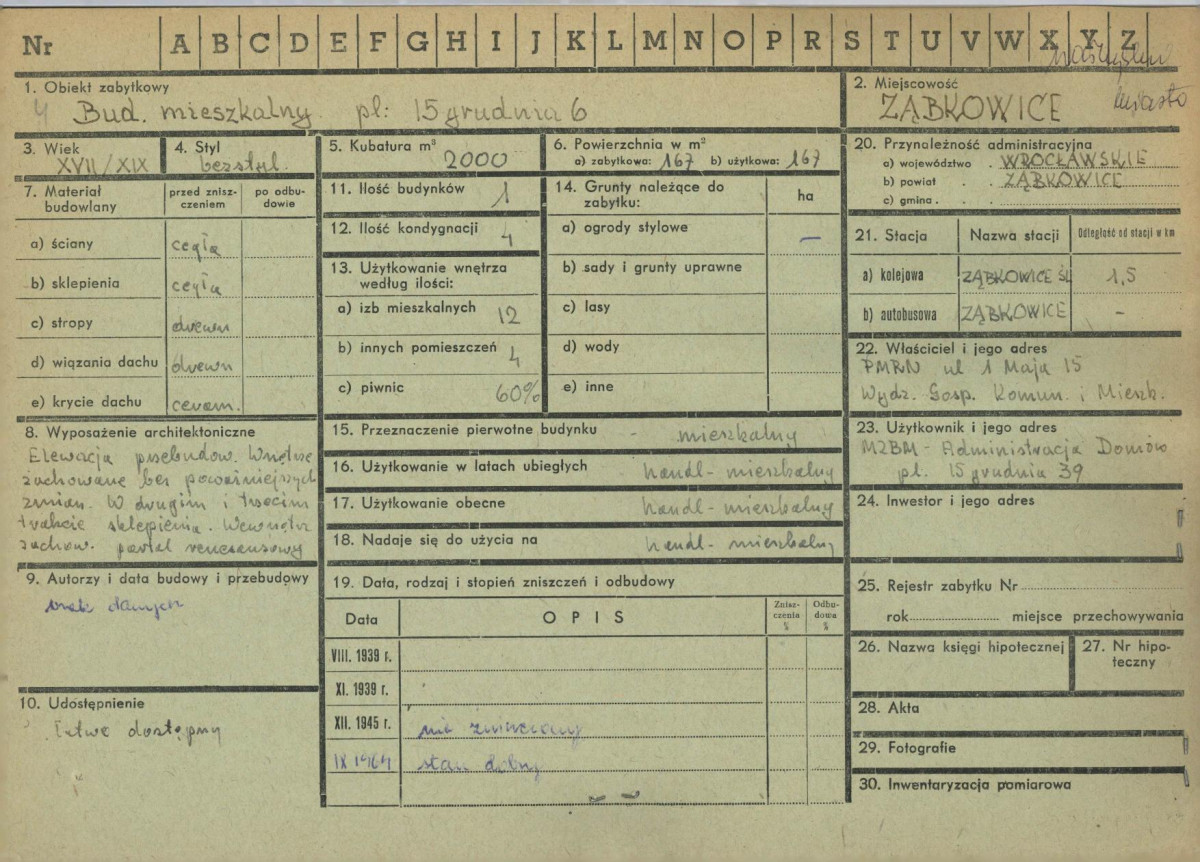 Nr A B C D E F G H I J K L M N O P R S T U V W X Y Z
1. Obiekt zabytkowy
Bud. mieszkalny pl: 15 grudnia 6
2. Miejscowość
ZĄBKOWICE
miasto
3. Wiek
XVII/XIX
4. Styl
bezstyl.
5. Kubatura m³
2000
6. Powierzchnia w m²
a) zabytkowa: 167 b) użytkowa: 167
20. Przynależność administracyjna
a) województwo . WROCŁAWSKIE
b) powiat . . ZĄBKOWICE
c) gmina . .
7. Materiał budowlany
przed znisz-
czeniem
po odbu-
dowie
a) ściany cegła
b) sklepienia cegła
c) stropy drewn
d) wiązania dachu drewn
e) krycie dachu ceram.
11. Ilość budynków 1
12. Ilość kondygnacji 4
13. Użytkowanie wnętrza
według ilości:
a) izb mieszkalnych 12
b) innych pomieszczeń 4
c) piwnic 60%
14. Grunty należące do
zabytku:
ha
a) ogrody stylowe —
b) sady i grunty uprawne
c) lasy
d) wody
e) inne
21. Stacja Nazwa stacji Odległość od stacji w km
a) kolejowa ZĄBKOWICE ŚL 1,5
b) autobusowa ZĄBKOWICE -
22. Właściciel i jego adres
PMRN ul 1 Maja 15
Wydz. Gosp. Komun. i Mieszk.
8. Wyposażenie architektoniczne
Elewacja przebudow. Wnętrze
zachowane bez poważniejszych
zmian. W drugim i trzecim
trakcie sklepienia. Wewnątrz
zachow. portal renesansowy
15. Przeznaczenie pierwotne budynku - mieszkalny
16. Użytkowanie w latach ubiegłych handl- mieszkalny
17. Użytkowanie obecne handl- mieszkalny
18. Nadaje się do użycia na handl- mieszkalny
23. Użytkownik i jego adres
MZBM - Administracja Domów
pl. 15 grudnia 39
24. Inwestor i jego adres
9. Autorzy i data budowy i przebudowy
brak danych
19. Data, rodzaj i stopień zniszczeń i odbudowy
Data OPIS
Znisz-
czenia
%
Odbu-
dowa
%
VIII. 1939 r.
XI. 1939 r.
XII. 1945 r. nie zniszczony
IX 1964 stan dobry
25. Rejestr zabytku Nr
rok miejsce przechowywania
26. Nazwa księgi hipotecznej
27. Nr hipo-
teczny
10. Udostępnienie
Łatwo dostępny
28. Akta
29. Fotografie
30. Inwentaryzacja pomiarowa